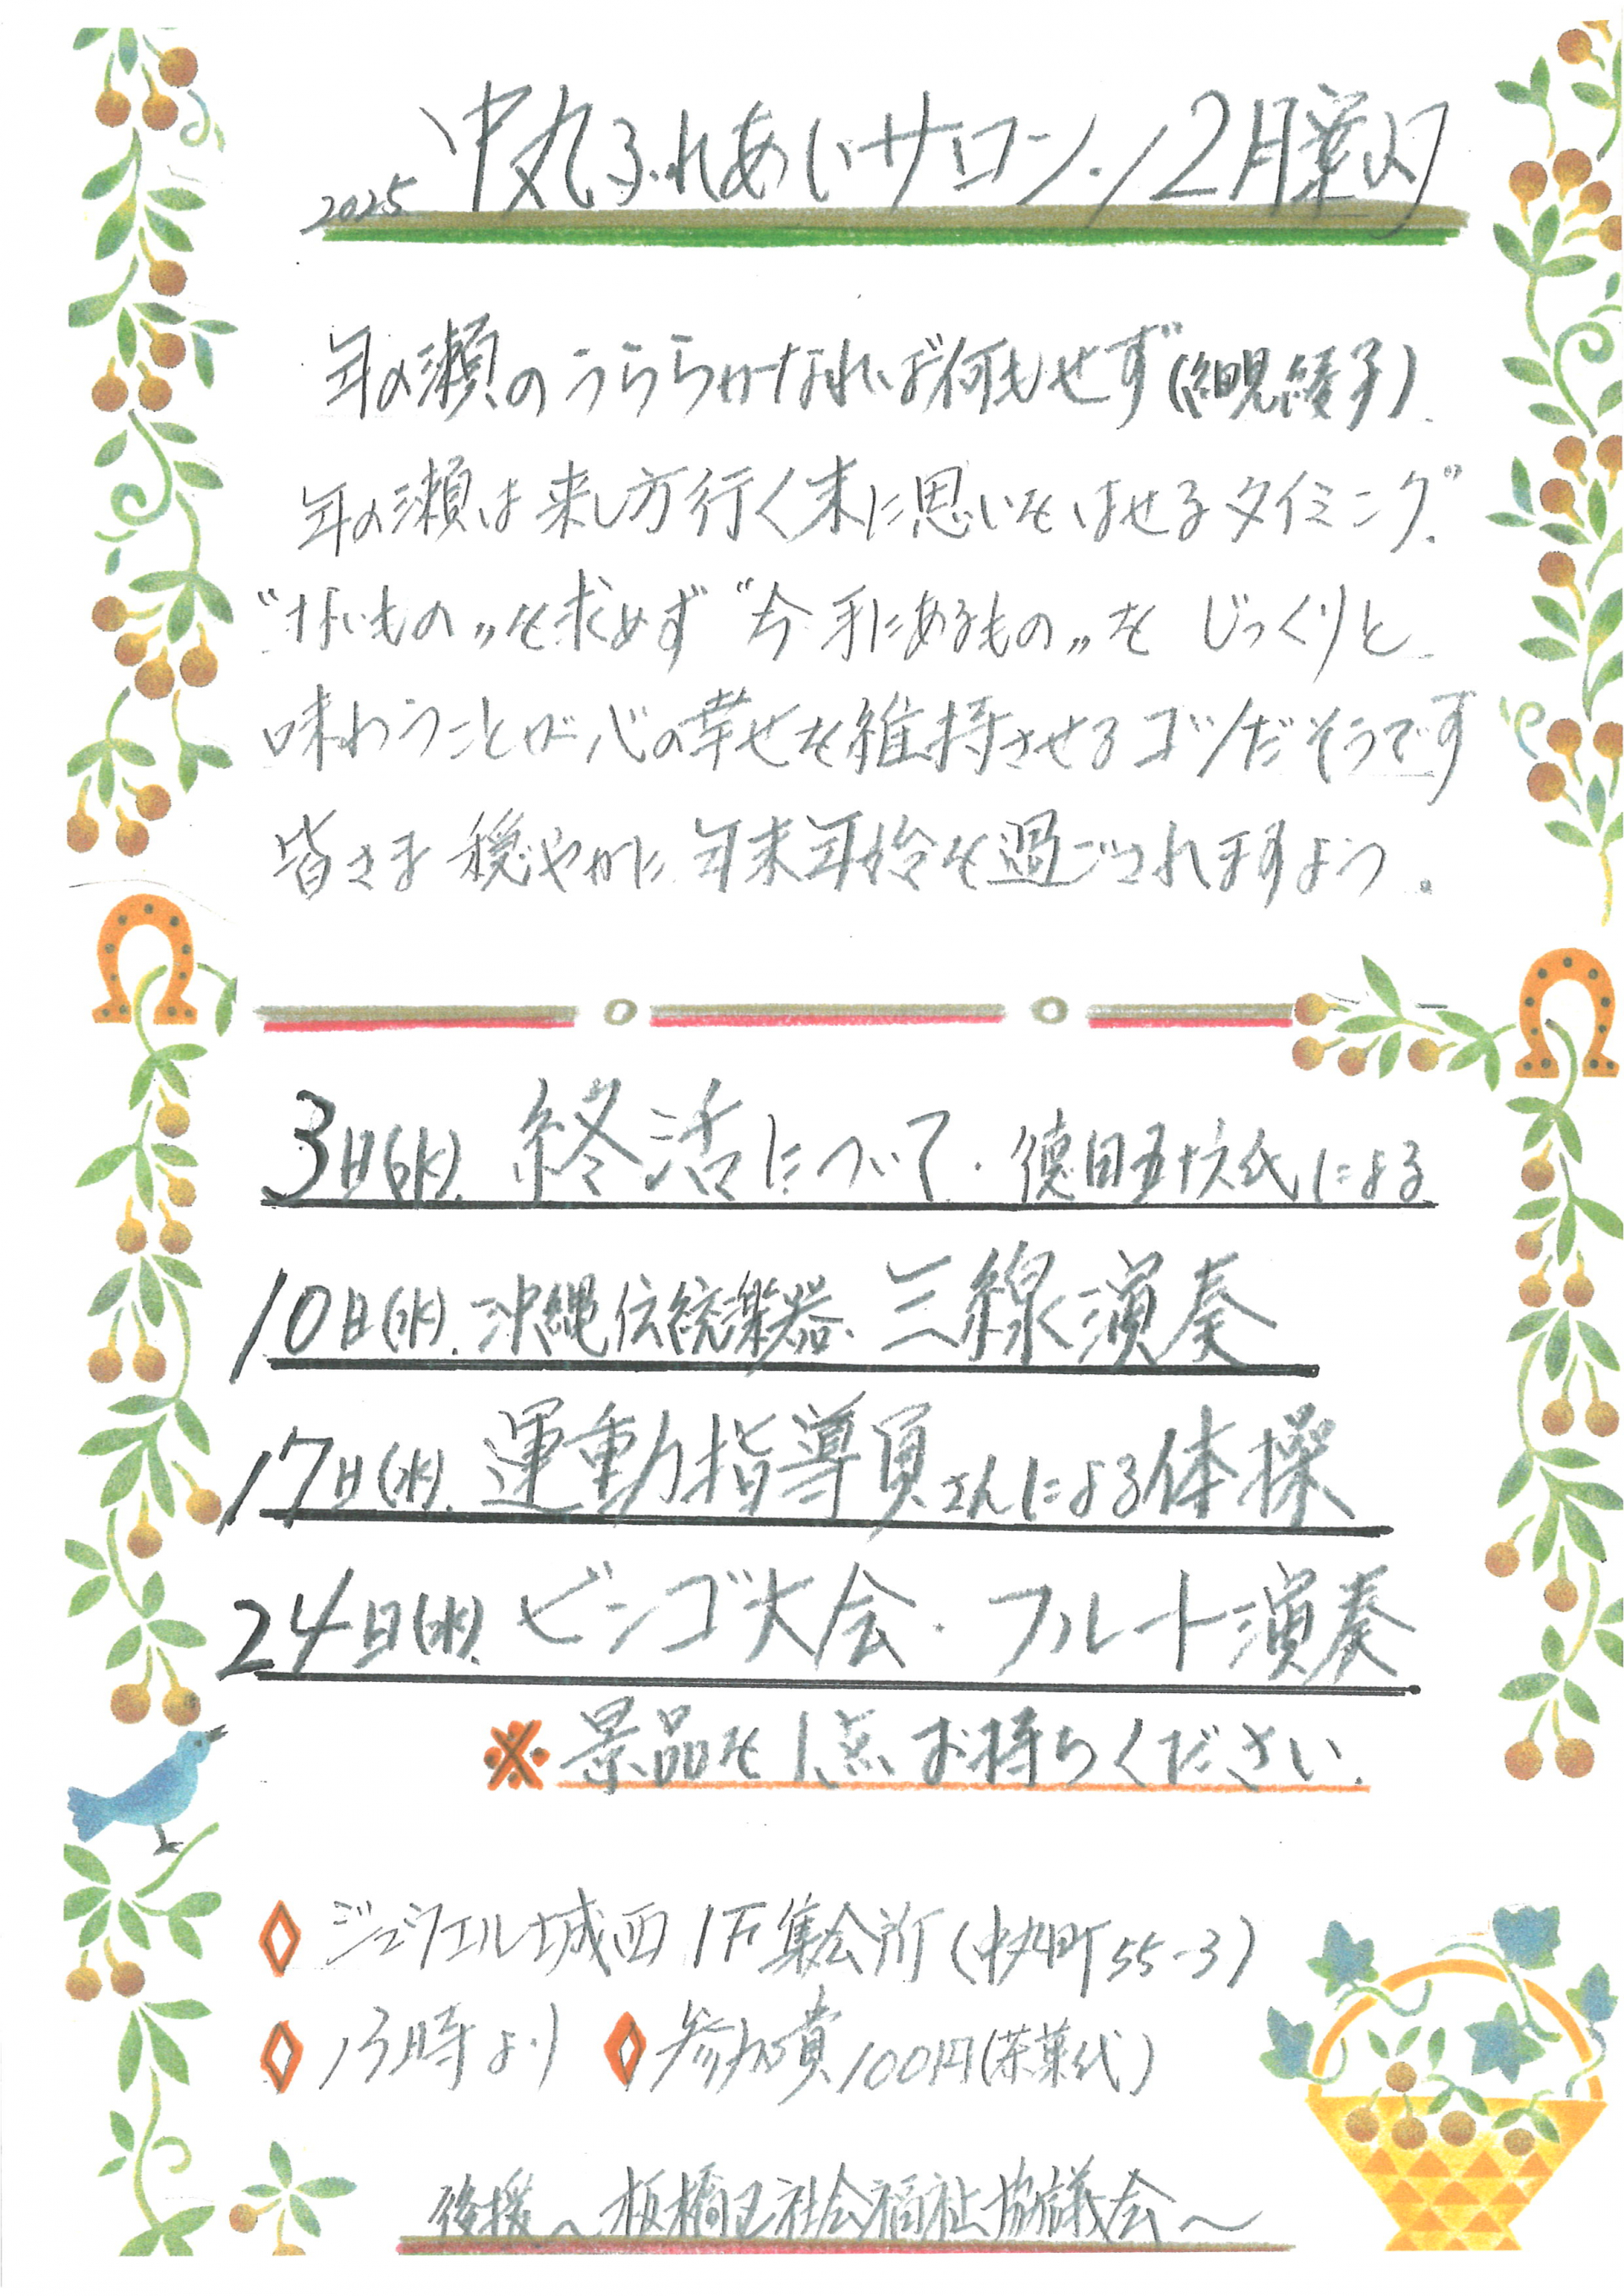 2025 中丸ふれあいサロン・12月案内
年の瀬のうららかなれば何もせず(細見綾子)
年の瀬は来し方行く末に思いをはせるタイミング。
“ないもの„を求めず“今手にあるもの„を じっくりと
味わうことが心の幸せを維持させるコツだそうです
皆さま 穏やかに 年末年始を過ごされますよう。
3日(水). 終活について・徳田五十六氏による
10日(水). 沖縄伝統楽器、三線演奏
17日(水). 運動指導員さんによる体操
24日(水). ビンゴ大会・フルート演奏
※景品を1点お持ちください.
◇ ジュウェル城西1F集会所(中丸町55-3)
◇ 13時より ◇ 参加費100円(茶菓代)
後援〜板橋区社会福祉協議会〜